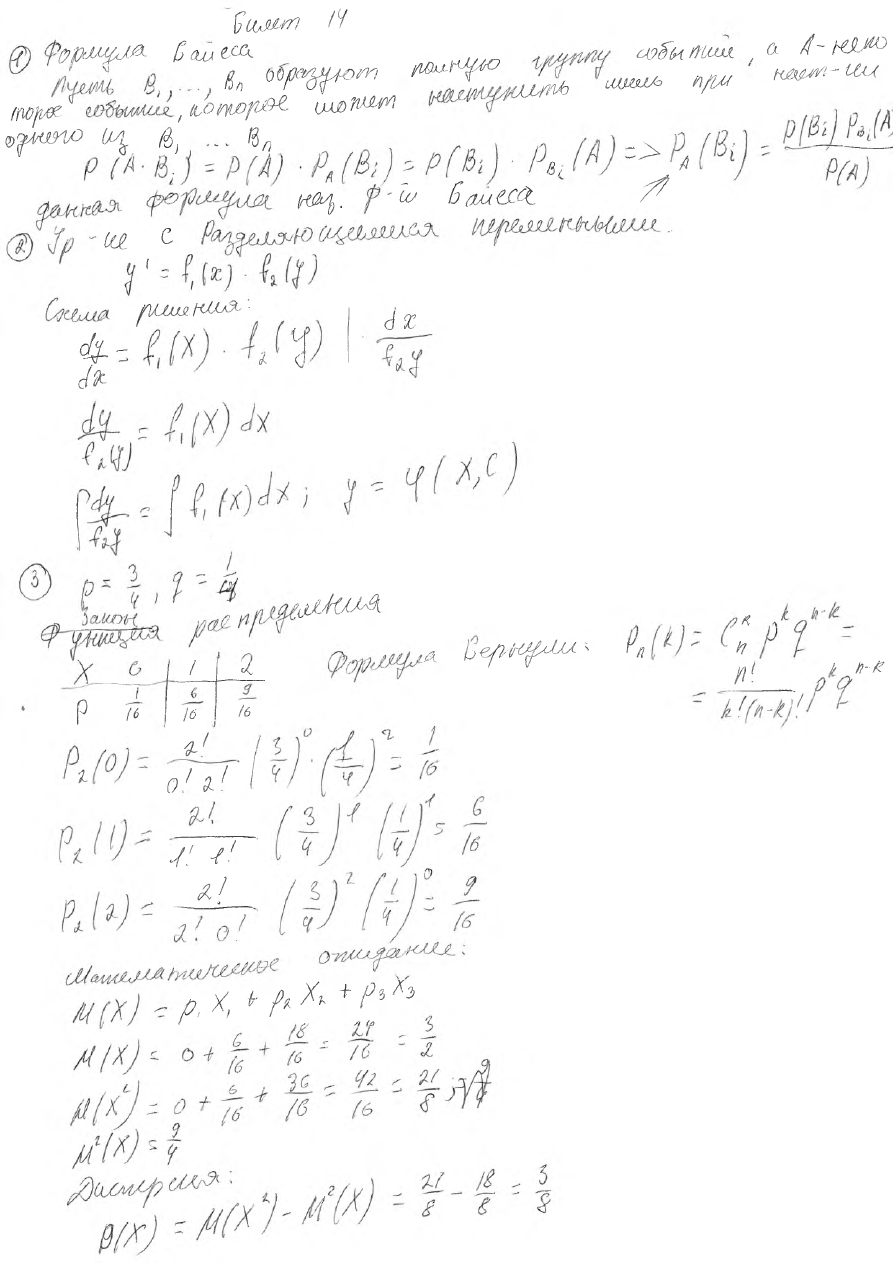 Билет 14
① Формула Байеса
Пусть B₁, ..., Bₙ образуют полную группу событий, а A - неко
торое событие, которое может наступить лишь при наст-ии
одного из B₁ ... Bₙ
P(A·Bᵢ) = P(A) · P_A(Bᵢ) = P(Bᵢ) · P_Bᵢ(A) => P_A(Bᵢ) = P(Bᵢ) P_Bᵢ(A) / P(A)
данная формула наз. ф-й Байеса
② Ур-ие с Разделяющимися переменными.
y' = f₁(x) · f₂(y)
Схема решения:
dy/dx = f₁(x) · f₂(y) | · dx/f₂y
dy/f₂(y) = f₁(x) dx
∫ dy/f₂y = ∫ f₁(x) dx ; y = φ(x, C)
③ p = 3/4, q = 1/4
Закон
Функция распределения
X 0 | 1 | 2
P 1/16 | 6/16 | 9/16
Формула Бернули: Pₙ(k) = Cₙᵏ pᵏ qⁿ⁻ᵏ =
= n!/k!(n-k)! pᵏ qⁿ⁻ᵏ
P₂(0) = 2!/0! 2! (3/4)⁰ · (1/4)² = 1/16
P₂(1) = 2!/1! 1! (3/4)¹ (1/4)¹ = 6/16
P₂(2) = 2!/2! 0! (3/4)² (1/4)⁰ = 9/16
Математическое ожидание:
M(X) = p₁ X₁ + p₂ X₂ + p₃ X₃
M(X) = 0 + 6/16 + 18/16 = 24/16 = 3/2
M(X²) = 0 + 6/16 + 36/16 = 42/16 = 21/8 ;
M²(X) = 9/4
Дисперсия:
D(X) = M(X²) - M²(X) = 21/8 - 18/8 = 3/8